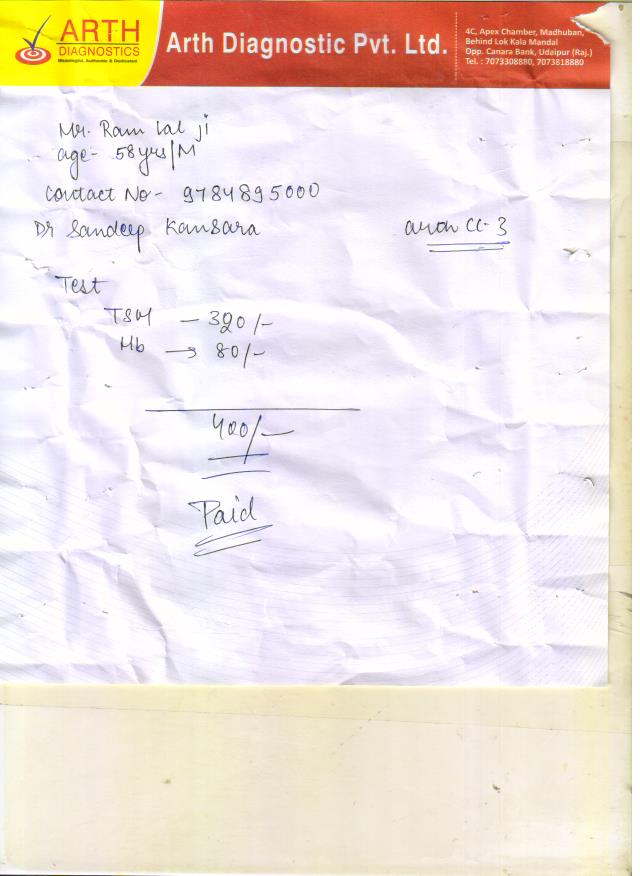 ARTH
DIAGNOSTICS
Meaningful, Authentic & Dedicated
Arth Diagnostic Pvt. Ltd.
4C, Apex Chamber, Madhuban,
Behind Lok Kala Mandal
Opp. Canara Bank, Udaipur (Raj.)
Tel. : 7073308880, 7073818880
Mr. Ram Lal ji
age- 58yrs/M
Contact No- 9784895000
Dr Sandeep Kansara
CC-3
Test
TSH - 320/-
Hb → 80/-
400/-
Paid